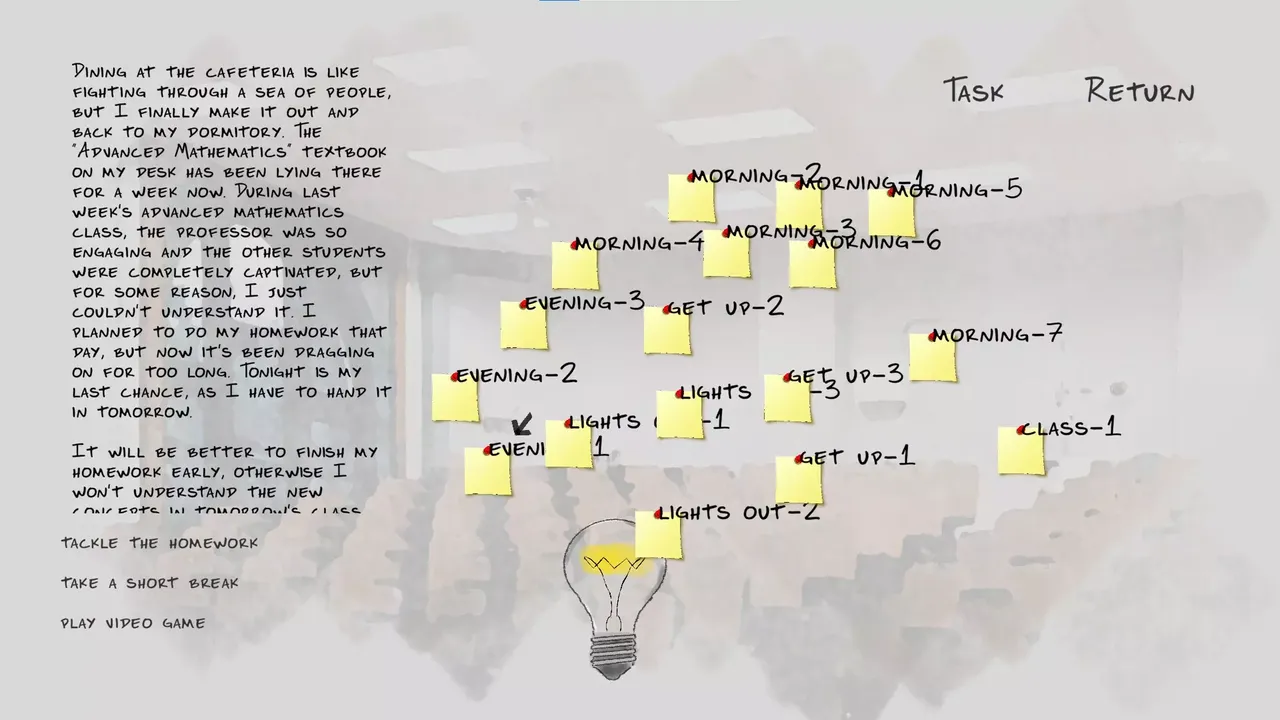 Dining at the cafeteria is like
fighting through a sea of people,
but I finally make it out and
back to my dormitory. The
"Advanced Mathematics" textbook
on my desk has been lying there
for a week now. During last
week's advanced mathematics
class, the professor was so
engaging and the other students
were completely captivated, but
for some reason, I just
couldn't understand it. I
planned to do my homework that
day, but now it's been dragging
on for too long. Tonight is my
last chance, as I have to hand it
in tomorrow.
It will be better to finish my
homework early, otherwise I
won't understand the new
concepts in tomorrow's class
tackle the homework
take a short break
play video game
Task
Return
morning-2
morning-1
morning-5
morning-3
morning-4
morning-6
evening-3
get up-2
morning-7
evening-2
get up-3
lights -3
lights -1
class-1
eveni 1
get up-1
lights out-2